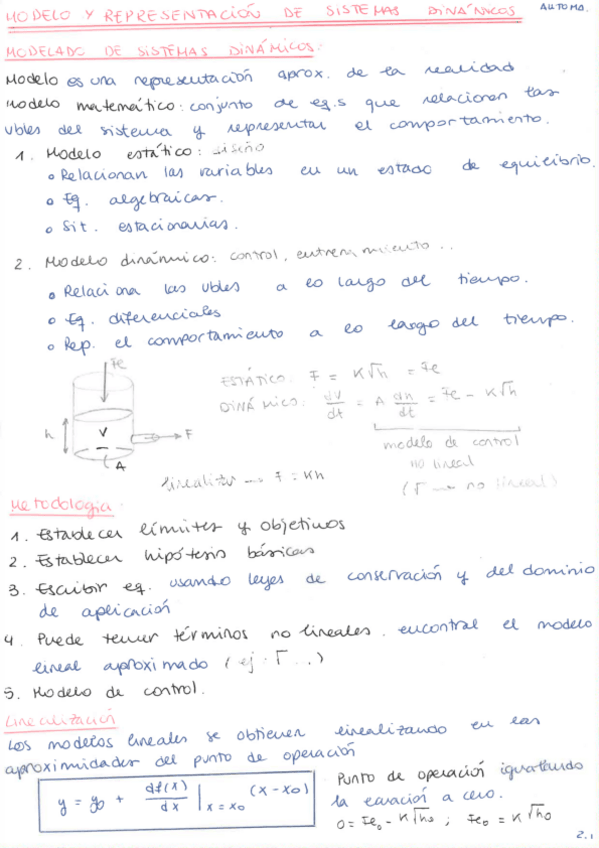 MODELO Y REPRESENTACIÓN DE SISTEMAS DINÁMICOS AUTOMA.
MODELADO DE SISTEMAS DINÁMICOS:
Modelo es una representación aprox. de la realidad
Modelo matemático: conjunto de eq.s que relacionan las
vbles del sistema y representar el comportamiento.
1. Modelo estático: diseño
o Relacionan las variables en un estado de equilibrio.
o Eq. algebraicas.
o Sit. estacionarias.
2. Modelo dinámico: control, entrenamiento ..
o Relaciona las vbles a lo largo del tiempo.
o Eq. diferenciales
o Rep. el comportamiento a lo largo del tiempo.
Fe
ESTÁTICO: F = K√h = Fe
DINÁMICO: dV/dt = A dh/dt = Fe - K√h
h V F
A
modelo de control
no lineal
(√ → no lineal)
linealizar → F = Kh
Metodología:
1. Establecer límites y objetivos
2. Establecer hipótesis básicas
3. Escribir eq. usando leyes de conservación y del dominio
de aplicación
4. Puede tener términos no lineales. encontrar el modelo
lineal aproximado (ej: √ ...)
5. Modelo de control.
Linealización
Los modelos lineales se obtienen linealizando en las
aproximidades del punto de operación
y = y0 + df(x)/dx | x = x0 (x - x0)
Punto de operación igualando
la ecuación a cero.
0 = Fe0 - K√h0 ; Fe0 = K√h0
2.1